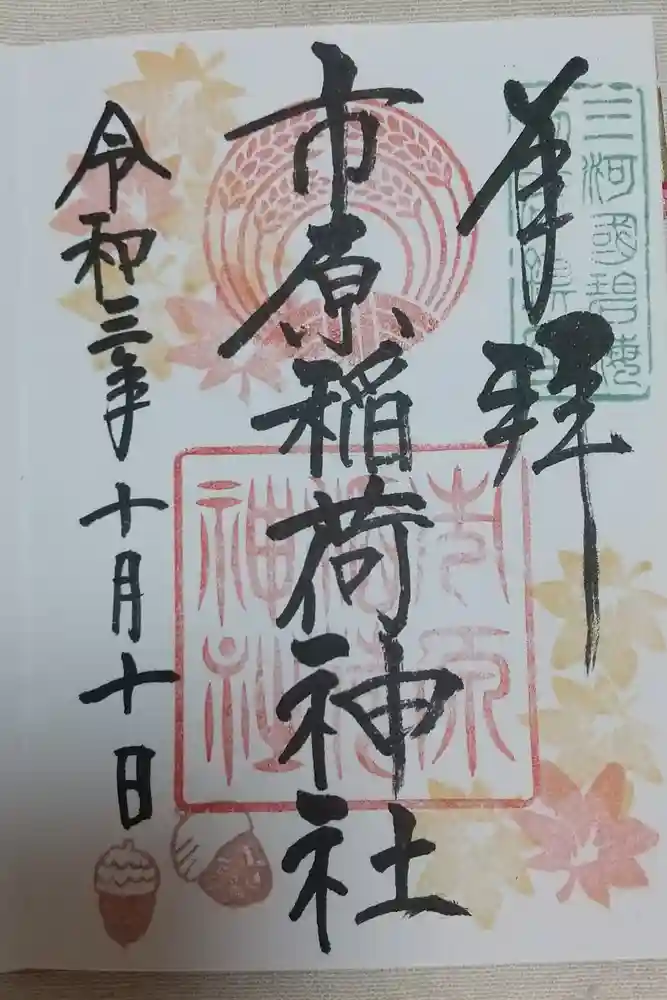 三河國碧海
奉拝
市原稲荷神社
市原稲荷神社
令和三年十月十日